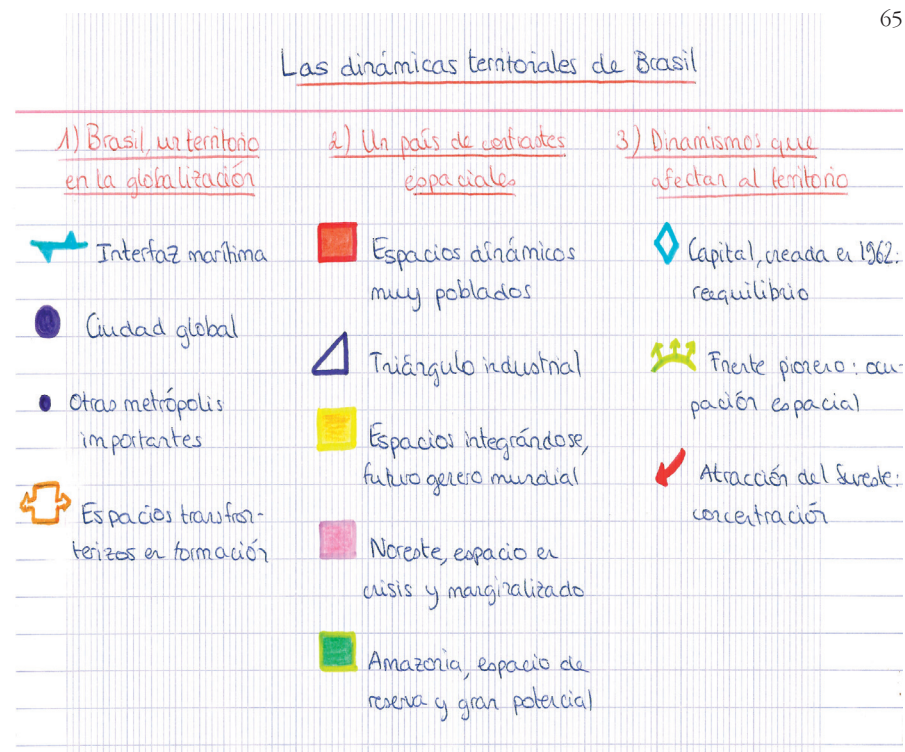 65
Las dinámicas territoriales de Brasil
1) Brasil, un territorio
en la globalización
Interfaz marítima
Ciudad global
Otras metrópolis
importantes
Espacios transfron-
terizos en formación
2) Un país de contrastes
espaciales
Espacios dinámicos
muy poblados
Triángulo industrial
Espacios integrándose,
futuro genero mundial
Noreste, espacio en
crisis y marginalizado
Amazonia, espacio de
reserva y gran potencial
3) Dinamismos que
afectan al territorio
Capital, creada en 1962:
reequilibrio
Frente pionero: ocu-
pación espacial
Atracción del Sureste:
concentración